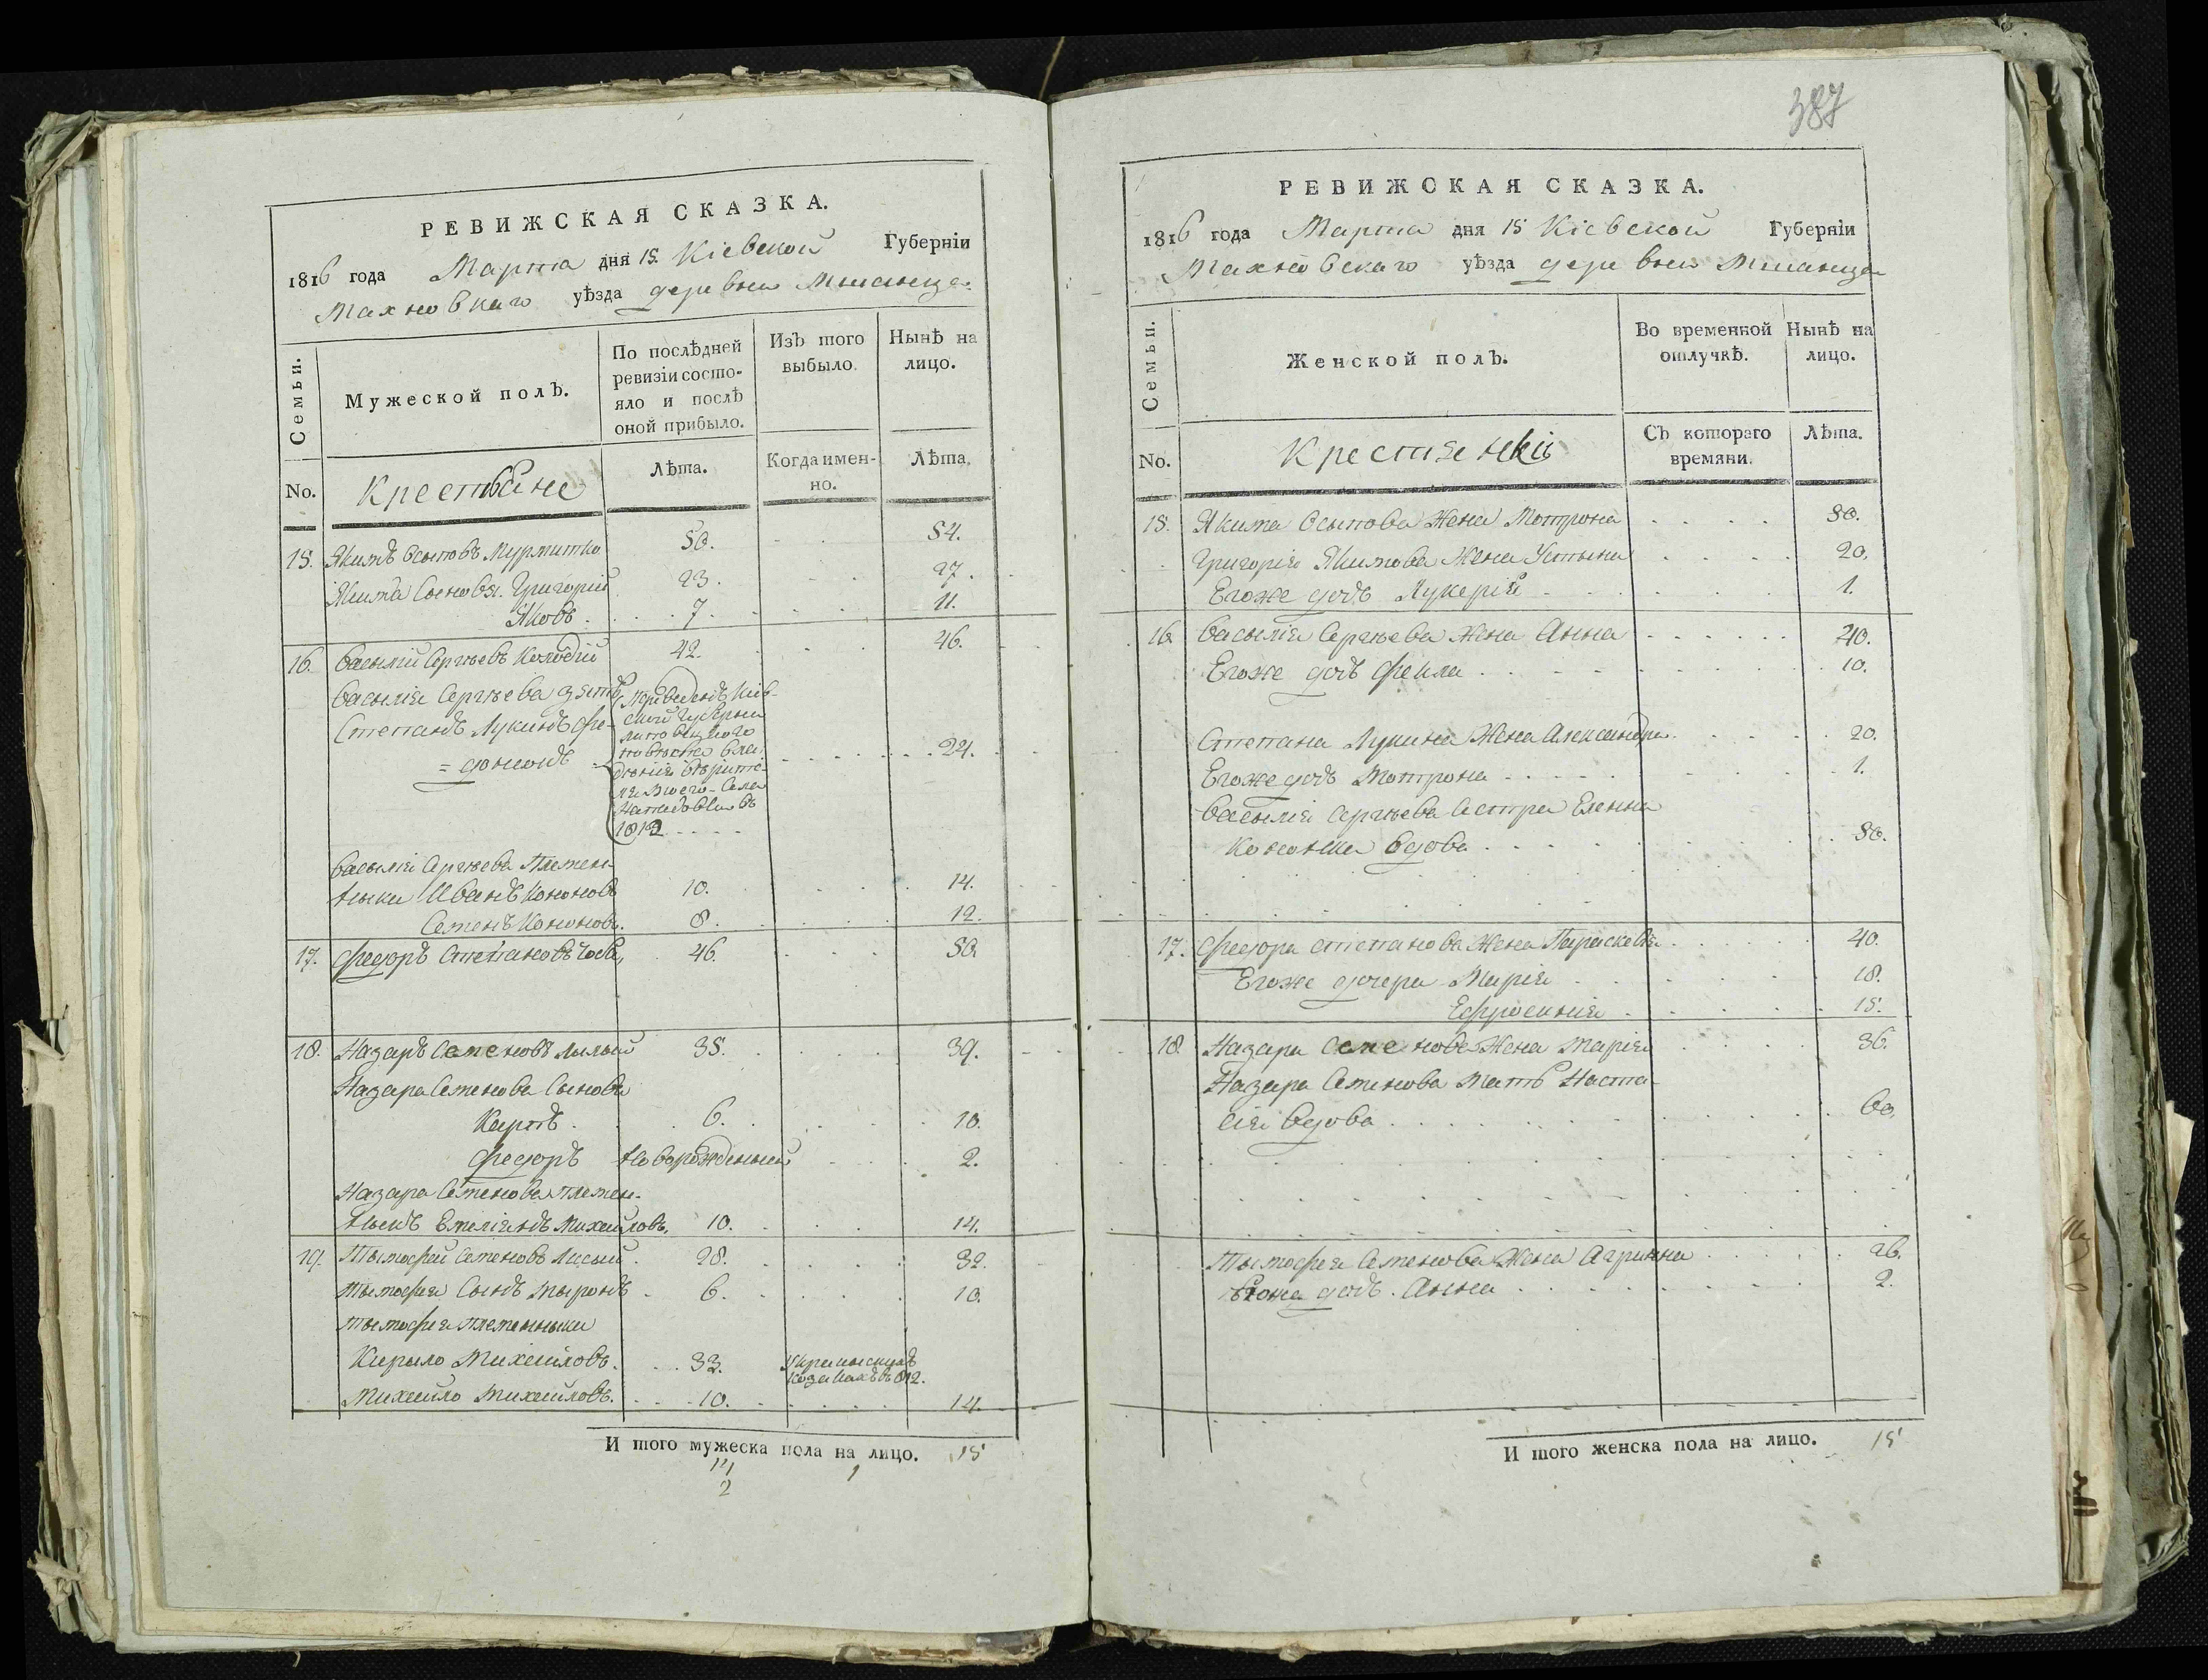 387
РЕВИЖСКАЯ СКАЗКА.
1816 года Марта дня 15. Кіевской Губерніи
Махновскаго уѣзда деревни Мшанца
Семьи.
Мужеской полЪ.
По послѣдней
ревизіи состо-
яло и послѣ
оной прибыло.
ИзЪ того
выбыло.
Нынѣ на
лицо.
No.
Крестьяне
Лѣта.
Когда имен-
но.
Лѣта.
15. Якимъ Осыповъ Мурмитко 50. 54.
Якима Сыновя. Григорий 23. 27.
Яковъ 7. 11.
16. Василий Сергѣевъ Колодій 42. 46.
Василія Сергѣева зять
Степанъ Лукинъ Фе-
= донюкъ 24.
Переведенъ Кіев-
ской Губерныи
повѣта вла-
дѣнія
1812
Василія Сергѣева Племен-
ныки Иванъ Кононовъ 10. 14.
Семенъ Кононовъ. 8. 12.
17. Федоръ Степановъ 46. 50.
18. Назаръ Семеновъ Лысый 35. 39.
Назара Семенова Сыновя
Карпъ 6. 10.
Федоръ Новорожденный 2.
Назара Семенова племен-
ныкъ Емеліянъ Михайловъ. 10. 14.
19. Тымофей Семеновъ Лысый 28. 32.
Тымофея Сынъ Миронъ 6. 10.
Тымофея племянныки
Кирыло Михайловъ. 33.
козакахъ въ 812.
Михайло Михайловъ. 10. 14.
И того мужеска пола на лицо. 15
14 1
2
РЕВИЖСКАЯ СКАЗКА.
1816 года Марта дня 15 Кіевской Губерніи
Махновскаго уѣзда деревни Мшанца
Семьи.
Женской полЪ.
Во временной
отлучкѣ.
Нынѣ на
лицо.
No.
Крестянкы
СЪ котораго
времяни.
Лѣта.
15. Якима Осыпова Жена Мотрона 50.
Григорія Якимова Жена Устына 20.
Егоже дочь Лукерія 1.
16. Василія Сергѣева Жена Анна 40.
Егоже дочь Фекла 10.
Степана Лукина Жена Александра 20.
Егоже дочь Мотрона 1.
Василія Сергѣева Сестра Еленна
Кононка Вдова 50.
17. Федора Степанова Жена Параскевія 40.
Егоже дочери Марія 18.
Ефросинія 15.
18. Назара Семенова Жена Марія 36.
Назара Семенова Мать Наста-
сія Вдова 60.
Тымофея Семенова Жена Агрипина 26.
Егоже дочь. Анна 2.
И того женска пола на лицо. 15